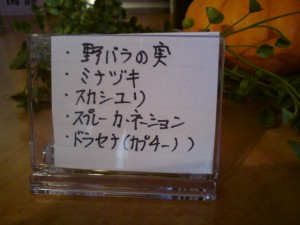 ・野バラの実
・ミナヅキ
・スカシユリ
・スプレーカーネーション
・ドラセナ(カプチーノ)